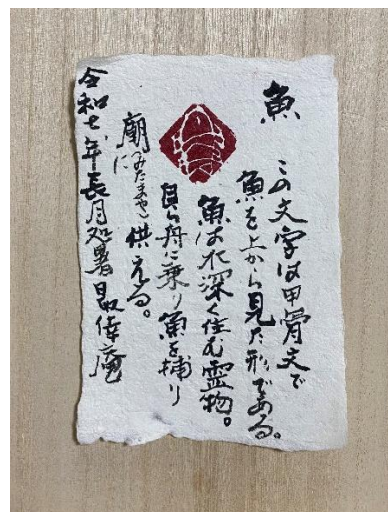 魚
この文字は甲骨文で
魚を上から見た形である。
魚は水深く住む霊物。
自ら舟に乗り魚を捕り
廟(みたまや)に供える。
令和七年長月処暑日最倖庵